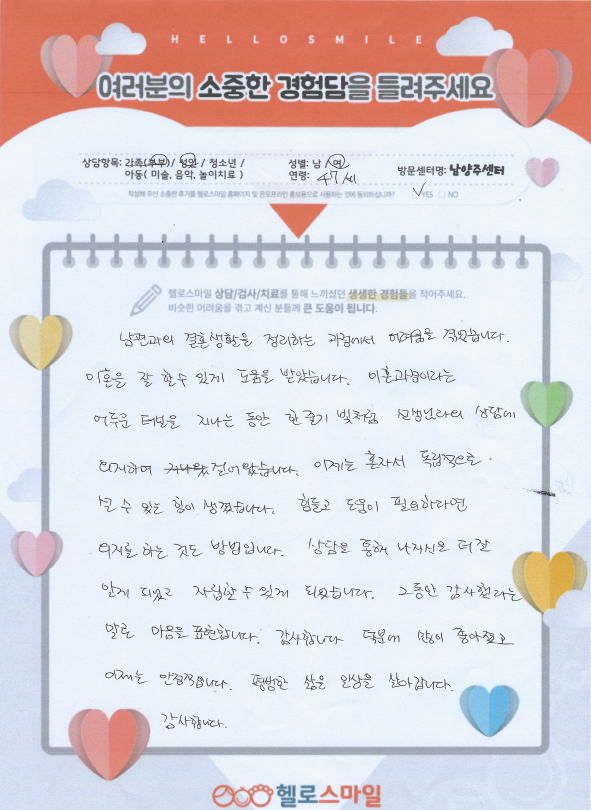 HELLOSMILE
여러분의 소중한 경험담을 들려주세요
상담항목: 가족(부부) / 성인 / 청소년 /
아동( 미술, 음악, 놀이치료 )
성별: 남 / 여
연령: 47세
방문센터명: 남양주센터
작성해 주신 소중한 후기를 헬로스마일 홈페이지 및 온오프라인 홍보용으로 사용하는 것에 동의하십니까? ✓YES □ NO
헬로스마일 상담/검사/치료를 통해 느끼셨던 생생한 경험들을 적어주세요.
비슷한 어려움을 겪고 계신 분들께 큰 도움이 됩니다.
남편과의 결혼생활을 정리하는 과정에서 어려움을 겪었습니다.
이혼을 잘 할 수 있게 도움을 받았습니다. 이혼과정이라는
어두운 터널을 지나는 동안 한 줄기 빛처럼 선생님과의 상담에
의지하며 걸어왔습니다. 이제는 혼자서 독립적으로
설 수 있는 힘이 생겼습니다. 힘들고 도움이 필요하다면
의지를 하는 것도 방법입니다. 상담을 통해 나 자신을 더 잘
알게 되었고 자립할 수 있게 되었습니다. 그동안 감사했다는
말로 마음을 표현합니다. 감사합니다 덕분에 많이 좋아졌고
이제는 안정적입니다. 평범한 삶을 일상을 살아갑니다.
감사합니다.
헬로스마일